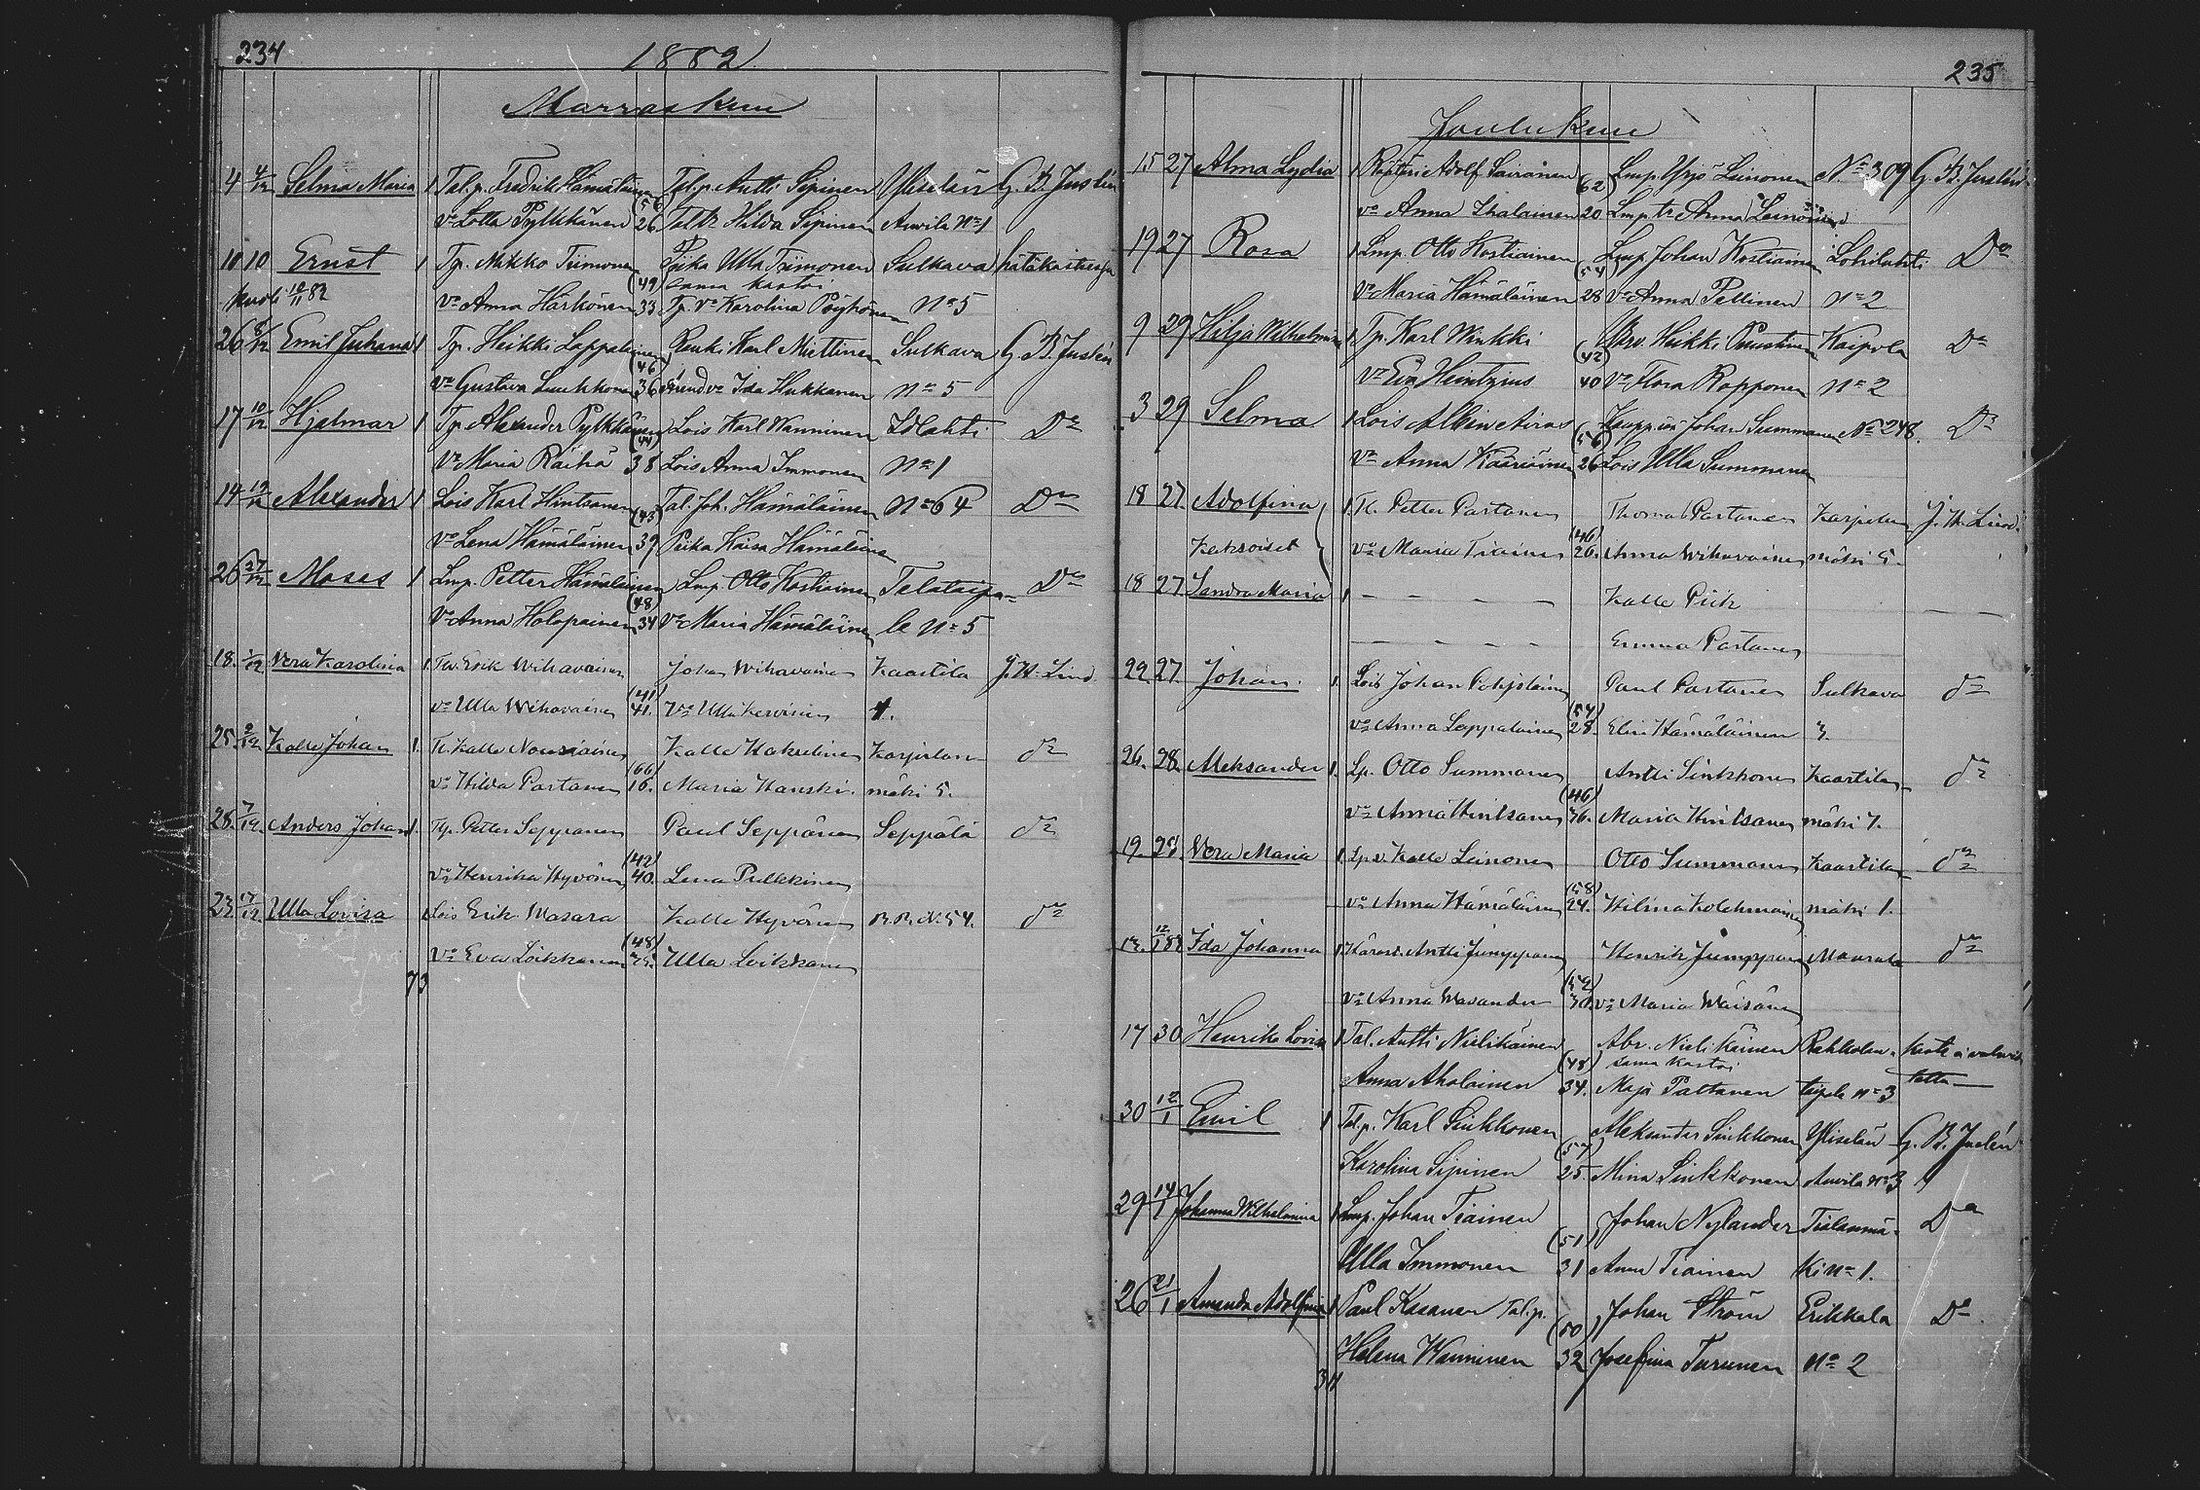 234
1882
Marraskuu
4 4/12 Selma Maria 1 Tal.p. Fredrik Hämäläinen Tal.p. Antti Sipinen Yliselän G. B. Juslén
(56)
vo Lotta Pylkkänen 26 Taltr Hilda Sipinen Auvila No 1
10 10 Ernst 1 Tp. Mikko Tiimonen Piika Ulla Tiimonen Sulkava hätäkasteessa
(49) sama kastoi
10/11 82 vo Anna Härkönen 33 Tp. vo Karolina Pöyhönen No 5
26 Emil Juhana 1 Tp. Heikki Lappalainen Renki Karl Miettinen Sulkava G. B. Juslén
(46)
vo Gustava Luukkonen 36 vo Ida Hukkanen No 5
17 10/12 Hjalmar 1 Tp. Alexander Pylkkänen Lois Karl Wanninen Idlahti Do
(44)
vo Maria Räihä 38 Lois Anna Immonen No 1
14 Alexander 1 Lois Karl Hintsanen Tal. Joh. Hämäläinen No 64 Do
(43)
vo Lena Hämäläinen 39 Piika Kaisa Hämäläinen
26 27/12 Moses 1 Lmp. Petter Hämäläinen Lmp. Otto Kostiainen Telataipa- Do
(48)
vo Anna Holopainen 34 vo Maria Hämäläinen le No 5
18. Vera Karolina 1 Erik Wihavainen Johan Wihavainen Kaartila J. H. Lind
(41)
vo Ulla Wihavainen 41. vo Ulla Kervinen 4.
25. Kalle Johan 1. Tl. Kalle Nousiainen Kalle Hakulinen Karjulan do
(66)
vo Hilda Partanen 16. Maria Hanski mäki 5.
28. 7/12. Anders Johan 1. Tp. Petter Seppänen Paul Seppänen Seppälä do
(42)
vo Henrika Hyvönen 40. Lena Pulkkinen
23. 17/12 Ulla Lovisa 1 Lois Erik Masara Kalle Hyvönen R. R. N. 54. do
(48)
vo Eva Loikkanen Ulla Loikkanen
73
235
Joulukuu
15 27 Alma Lydia 1 Räätäri Adolf Sairanen Lmp Yrjö Leinonen No 309 G. B. Juslén
(62)
vo Anna Ihalainen 20 Lmptr Anna Leinonen
19 27 Rosa 1 Lmp. Otto Kostiainen Lmp Johan Kostiainen Lohilahti Do
(54)
vo Maria Hämäläinen 28 vo Anna Pellinen No 2
9 29 Hilja Wilhelmina 1 Tp. Karl Winkki Heikki Puustinen Kaipola Do
(42)
vo Eva Heintzius 40 vo Flora Ropponen No 2
3 29 Selma 1 Lois Albin Airas Kauppias Johan Summanen No 248. Do
(56)
vo Anna Kääriäinen 26 Lois Ulla Summanen
18 27. Adolfina 1 Tl. Petter Partanen Thomas Partanen Karjulan J. H. Lind.
(46)
Kaksoiset vo Maria Tiainen 26. Anna Wihavainen mäki 5.
18 27 Sandra Maria 1 — — — — Kalle Pick — —
— — — — Emma Partanen
22 27. Johan. 1. Lois Johan Pohjolainen Paul Partanen Sulkava do
(54)
vo Anna Seppalainen 28. Elin Hämäläinen 3.
24. 28. Aleksander 1. Lp. Otto Summanen Antti Sinkkonen Kaartilan do
(46)
vo Anna Hintsanen 36. Maria Hintsanen mäki 7.
19. 28 Vera Maria 1 Kalle Leinonen Otto Summanen Kaartilan do
(58)
vo Anna Hämäläinen 24. Wilina Kolehmainen mäki 1.
Ida Johanna 1 Antti Jumppanen Henrik Jumppanen Maurula do
vo Anna Wasander 30. vo Maria Wäisänen
17 30 Henrika Lovisa 1 Tal. Antti Nielikäinen Abr. Nielikäinen Rahkolan-
(48) sama kastoi
Anna Aholainen 34. Maja Pattanen taipale No 3
30 12/1 Emil 1 Tal.p. Karl Sinkkonen Aleksander Sinkkonen Yliselän G. B. Juslén
(57)
Karolina Sipinen 25. Mina Sinkkonen Auvila No 3
29 14/1 Johanna Wilhelmina 1 Lmp. Johan Tiainen Johan Nylander Tialanmä- Do
(51)
Ulla Immonen 31 Anna Tiainen ki No 1.
26 21/1 Amanda Adolfina 1 Paul Kasanen Tal.p. Johan Ström Erikkala Do
(50)
Helena Wanninen 32 Josefina Turunen No 2
34